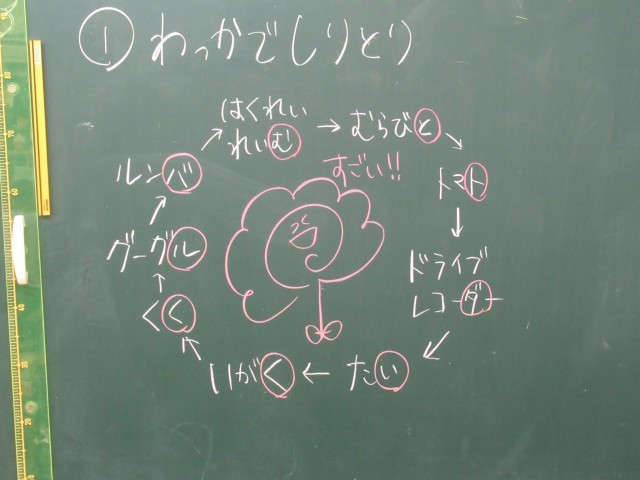 ① わっかでしりとり
はくれい
れいむ
→ むらびと
トマト
ドライブ
レコーダー
たい
← いがく
くく
グーグル
ルンバ
すごい!!